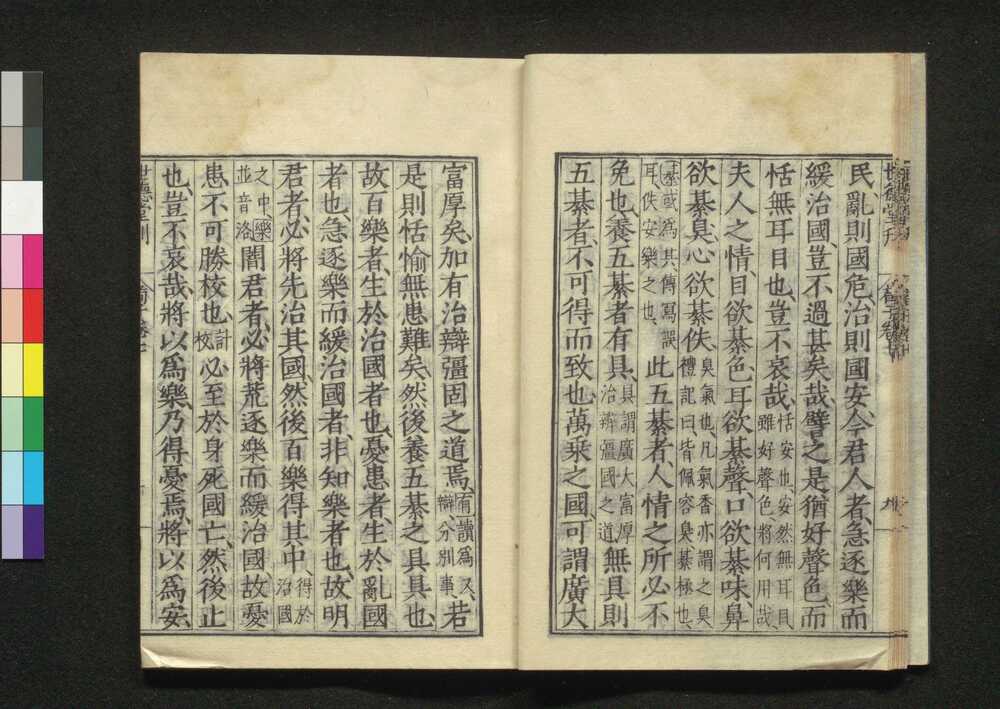 民亂則國危治則國安今君人者急逐樂而
緩治國豈不過甚矣哉譬之是猶好聲色而
恬無耳目也豈不哀哉恬安也安然無耳目雖好聲色將何用哉
夫人之情目欲綦色耳欲綦聲口欲綦味鼻
欲綦臭心欲綦佚臭氣也凡氣香亦謂之臭禮記曰皆佩容臭綦極也
綦或爲甚傳寫誤耳佚安樂之也此五綦者人情之所必不
免也養五綦者有具具謂廣大富厚治辨彊國之道無具則
五綦者不可得而致也萬乘之國可謂廣大
富厚矣加有治辯彊固之道焉有讀爲又辯分別事若
是則恬愉無患難矣然後養五綦之具具也
故百樂者生於治國者也憂患者生於亂國
者也急逐樂而緩治國者非知樂者也故明
君者必將先治其國然後百樂得其中得於治國
之中樂並音洛闇君者必將荒逐樂而緩治國故憂
患不可勝校也計校必至於身死國亡然後止
也豈不哀哉將以爲樂乃得憂焉將以爲安
世德堂刊